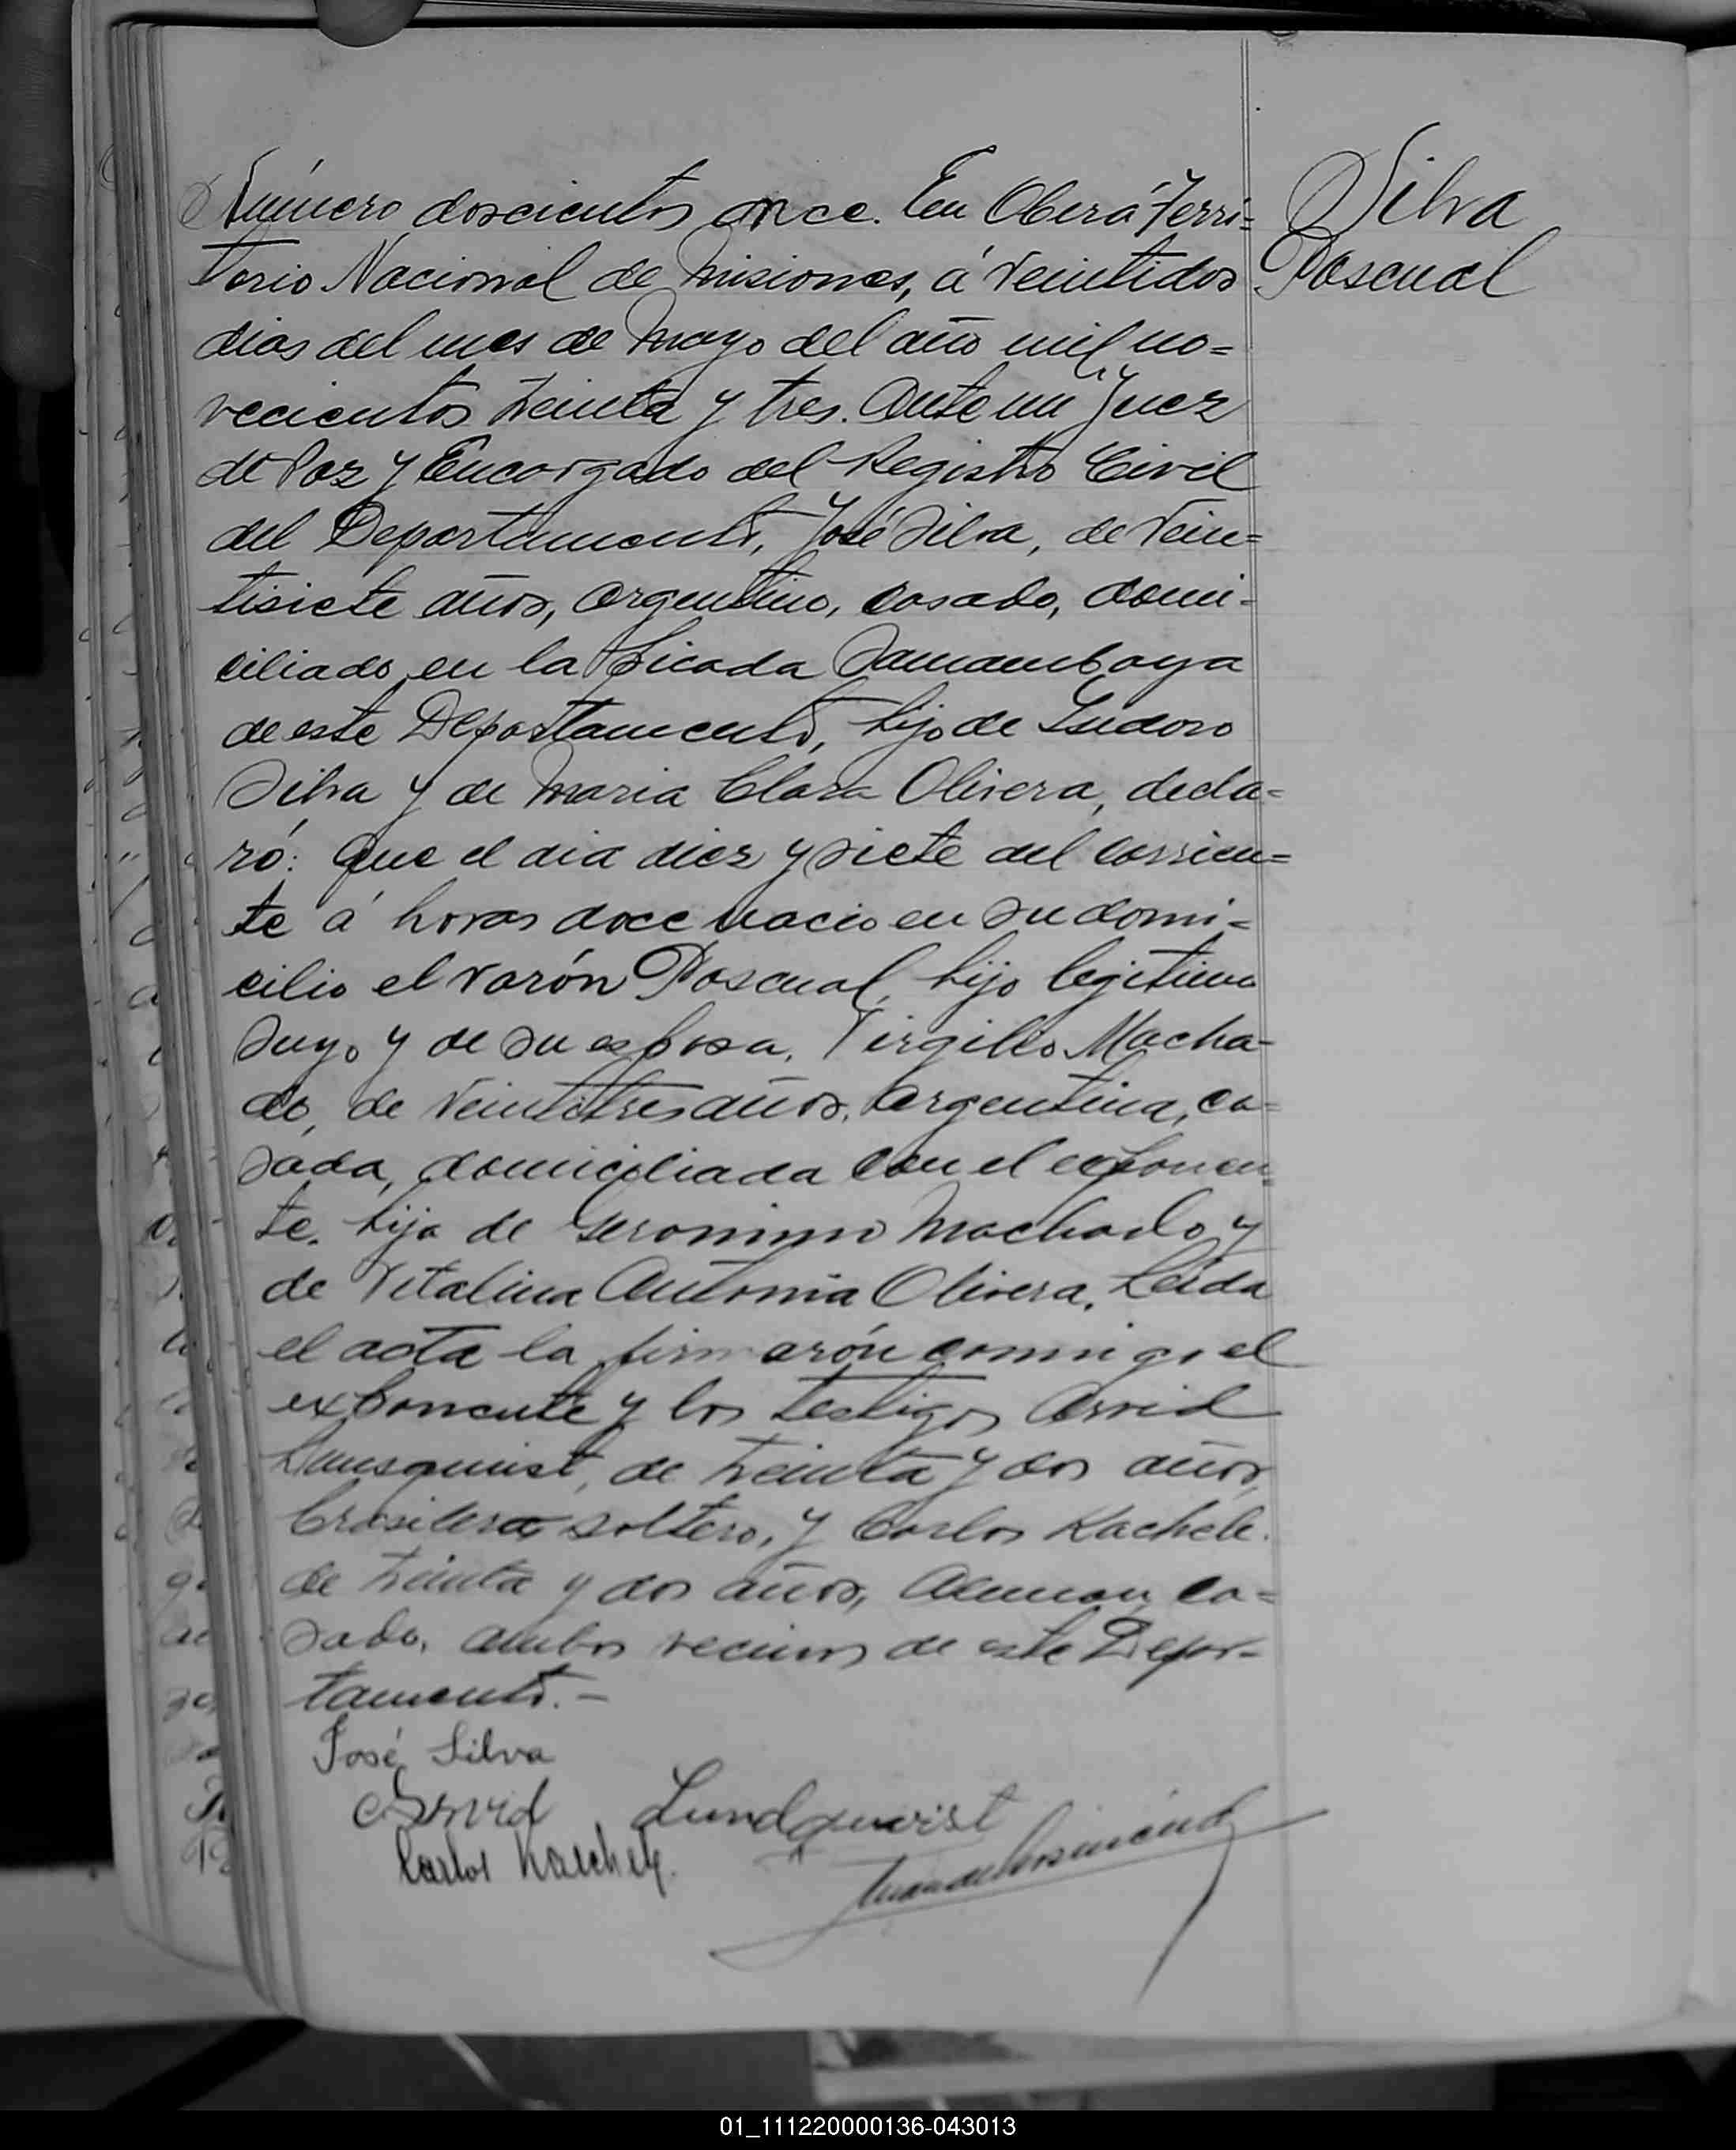 Número doscientos once. En Oberá Terri=
torio Nacional de Misiones, á veintidos
dias del mes de Mayo del año mil no=
vecientos treinta y tres. Ante mi Juez
de Paz y Encargado del Registro Civil
del Departamento, José Silva, de vein=
tisiete años, argentino, casado, domi=
ciliado en la Picada Samambaya
de este Departamento, hijo de Isidoro
Silva y de Maria Clara Olivera, decla=
ró: Que el dia diez y siete del corrien=
te á horas doce nacio en su domi=
cilio el varón Pascual, hijo legitimo
suyo y de su esposa, Virgilio Macha=
do, de veintitres años, argentina, ca=
sada, domiciliada con el exponen=
te, hija de Geronimo Machado y
de Vitalina Antonia Olivera. Leida
el acta la firmarón conmigo el
exponente y los testigos Arvid
de treinta y dos años,
brasilero soltero, y Carlos Kachele.
de treinta y dos años, Aleman, ca=
sado, ambos vecinos de este Depar=
tamento.-
José Silva
Arvid Lundqvist
Carlos
Silva
Pascual
01_111220000136-043013